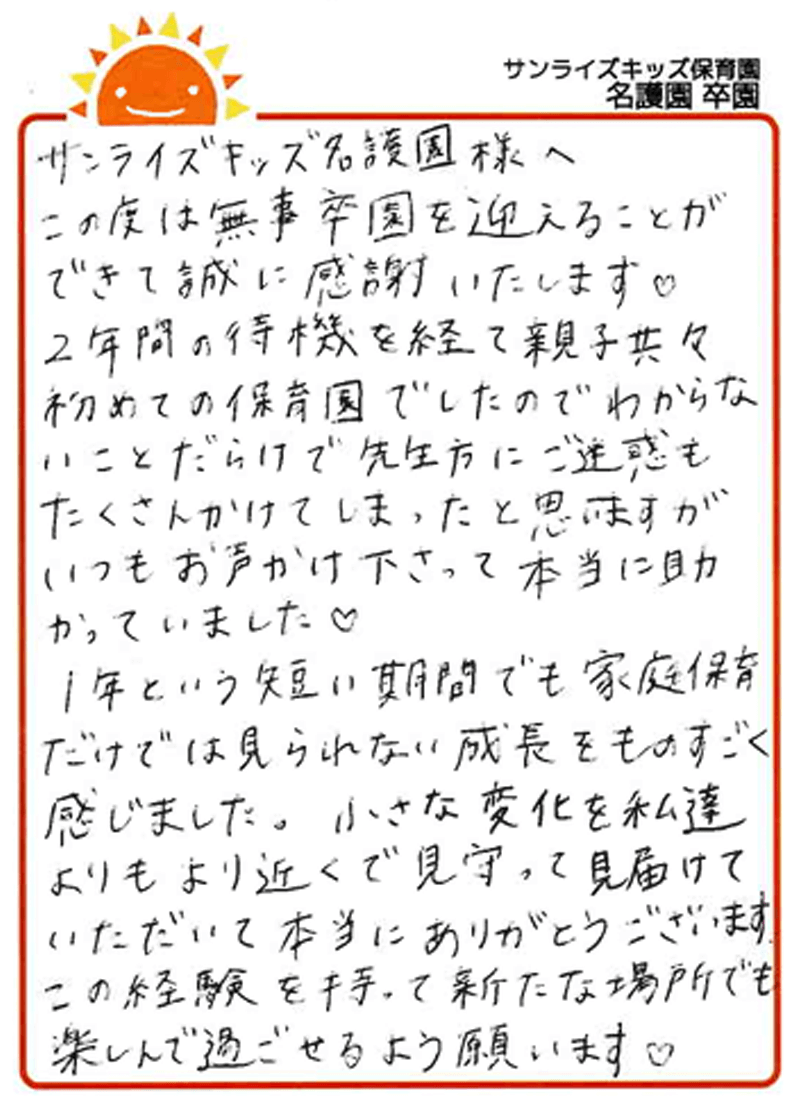 サンライズキッズ保育園
名護園 卒園
サンライズキッズ名護園様へ
この度は無事卒園を迎えることが
できて誠に感謝いたします♡
2年間の待機を経て親子共々
初めての保育園でしたのでわからな
いことだらけで先生方にご迷惑も
たくさんかけてしまったと思いますが
いつもお声かけ下さって本当に助
かっていました♡
1年という短い期間でも家庭保育
だけでは見られない成長をものすごく
感じました。小さな変化を私達
よりもより近くで見守って見届けて
いただいて本当にありがとうございます。
この経験を持って新たな場所でも
楽しんで過ごせるよう願います♡